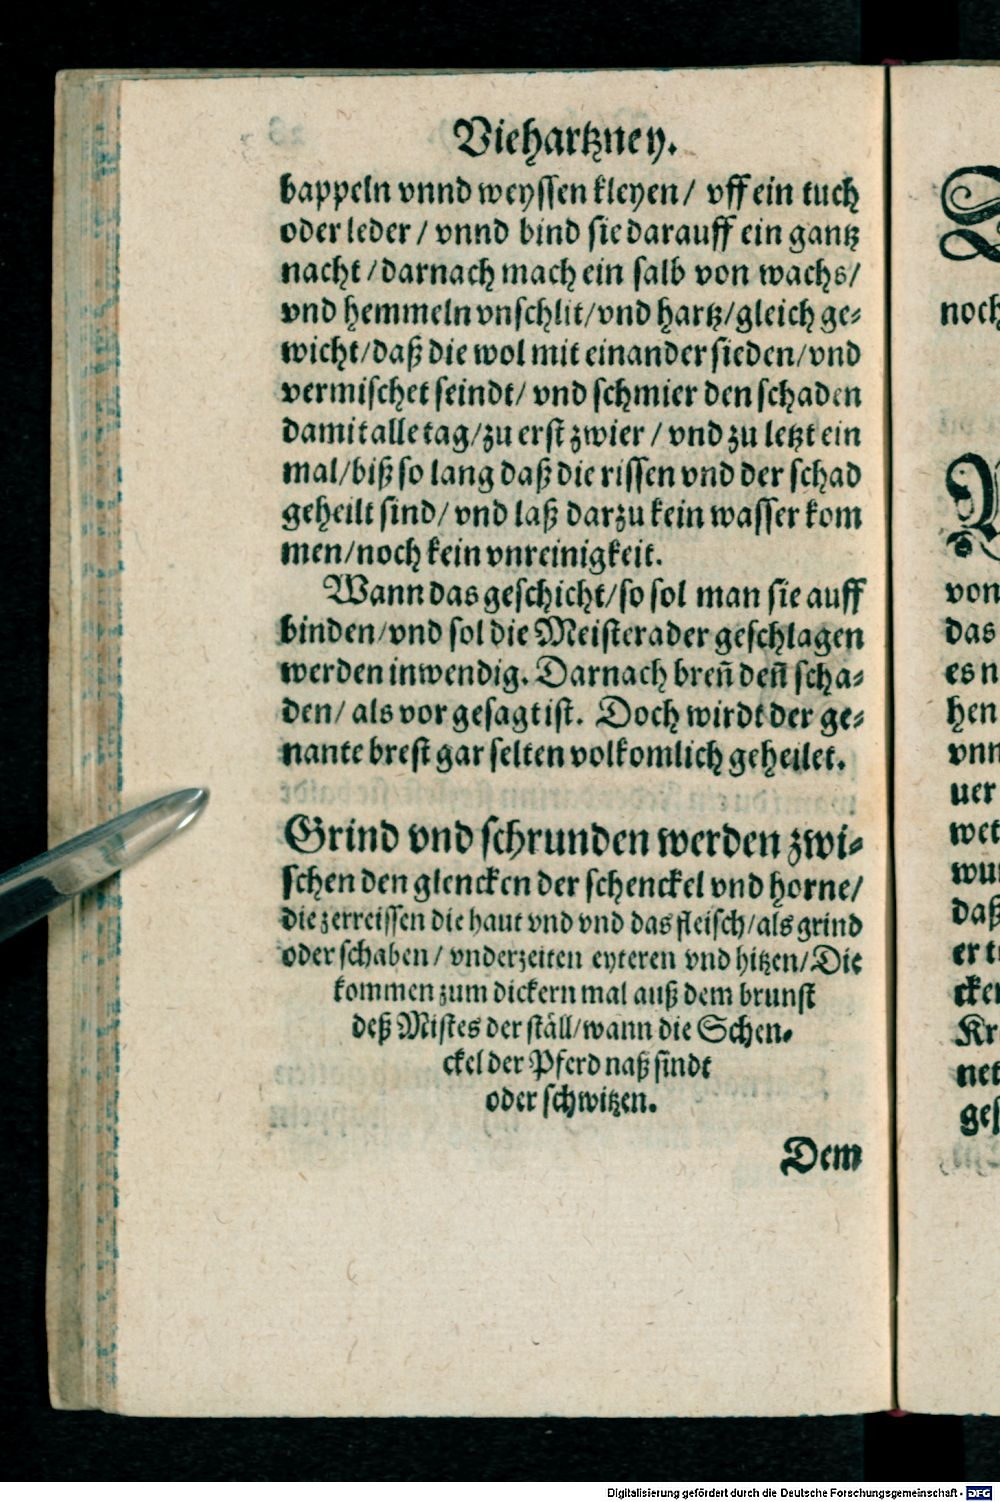 Viehartzney.
bappeln vnnd weyssen kleyen/ vff ein tuch
oder leder/ vnnd bind sie darauff ein gantz
nacht/darnach mach ein salb von wachs/
vnd hemmeln vnschlit/vnd hartz/gleich ge⸗
wicht/daß die wol mit einander sieden/vnd
vermischet seindt/ vnd schmier den schaden
damit alle tag/zu erst zwier/ vnd zu letzt ein
mal/biß so lang daß die rissen vnd der schad
geheilt sind/ vnd laß darzu kein wasser kom
men/noch kein vnreinigkeit.
Wann das geschicht/so sol man sie auff
binden/vnd sol die Meisterader geschlagen
werden inwendig. Darnach breñ deñ scha⸗
den/ als vor gesagt ist. Doch wirdt der ge⸗
nante brest gar selten volkomlich geheilet.
Grind vnd schrunden werden zwi⸗
schen den glencken der schenckel vnd horne/
die zerreissen die haut vnd vnd das fleisch/als grind
oder schaben/ vnderzeiten eyteren vnd hitzen/Die
kommen zum dickern mal auß dem brunst
deß Mistes der ställ/wann die Schen⸗
ckel der Pferd naß sindt
oder schwitzen.
Dem
noch
von
das
es n
hen
vnn
uer
wet
wur
daß
er t
cken
Kr
net
ges
Digitalisierung gefördert durch die Deutsche Forschungsgemeinschaft - DFG